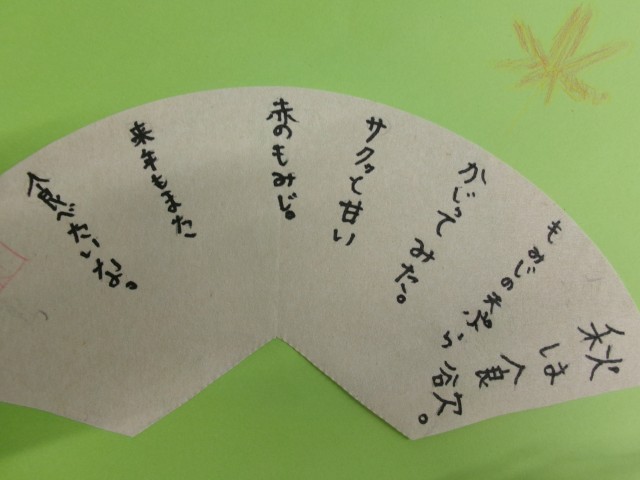 秋は食欲。
もみじの天ぷら
かじってみた。
サクッと甘い
赤のもみじ。
来年もまた
食べたいな。